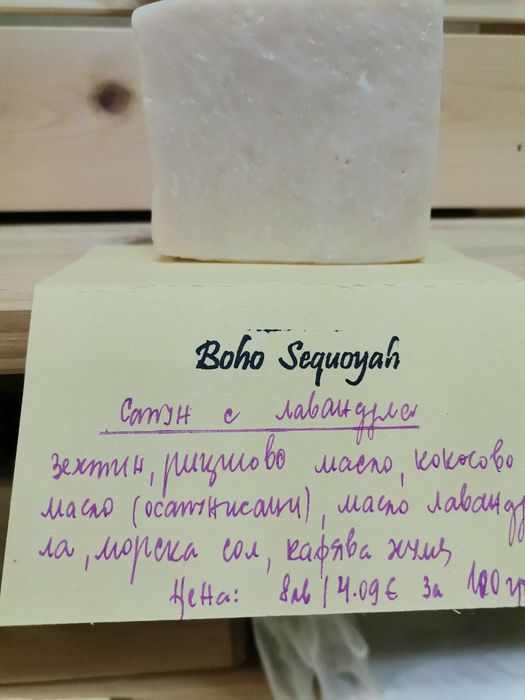 Boho Sequoyah
Сапун с лавандула
Зехтин, рициново масло, кокосово
масло (осапунисани), масло лаванду
ла, морска сол, кафява
Цена: 8лв / 4.09 € за 100 гр